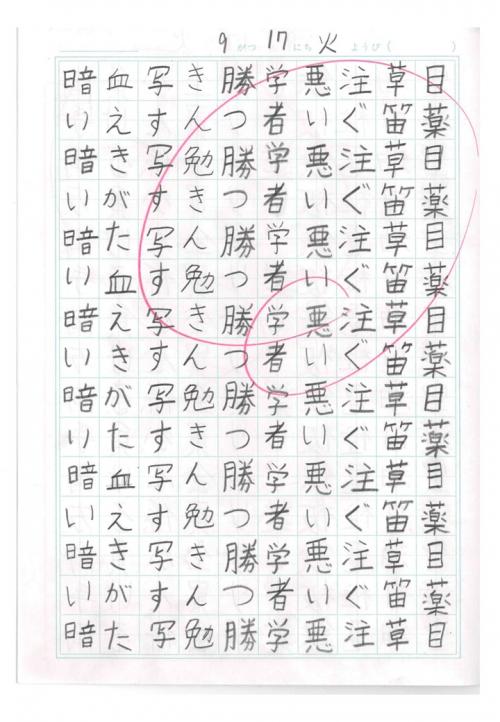 9がつ17にち火ようび( )
目薬目薬目薬目薬目薬目薬目薬目
草笛草笛草笛草笛草笛草笛草笛草
注ぐ注ぐ注ぐ注ぐ注ぐ注ぐ注ぐ注
悪い悪い悪い悪い悪い悪い悪い悪
学者学者学者学者学者学者学者学
勝つ勝つ勝つ勝つ勝つ勝つ勝つ勝
きん勉きん勉きん勉きん勉きん勉
写す写す写す写す写す写す写す写
血えきがた血えきがた血えきがた
暗い暗い暗い暗い暗い暗い暗い暗